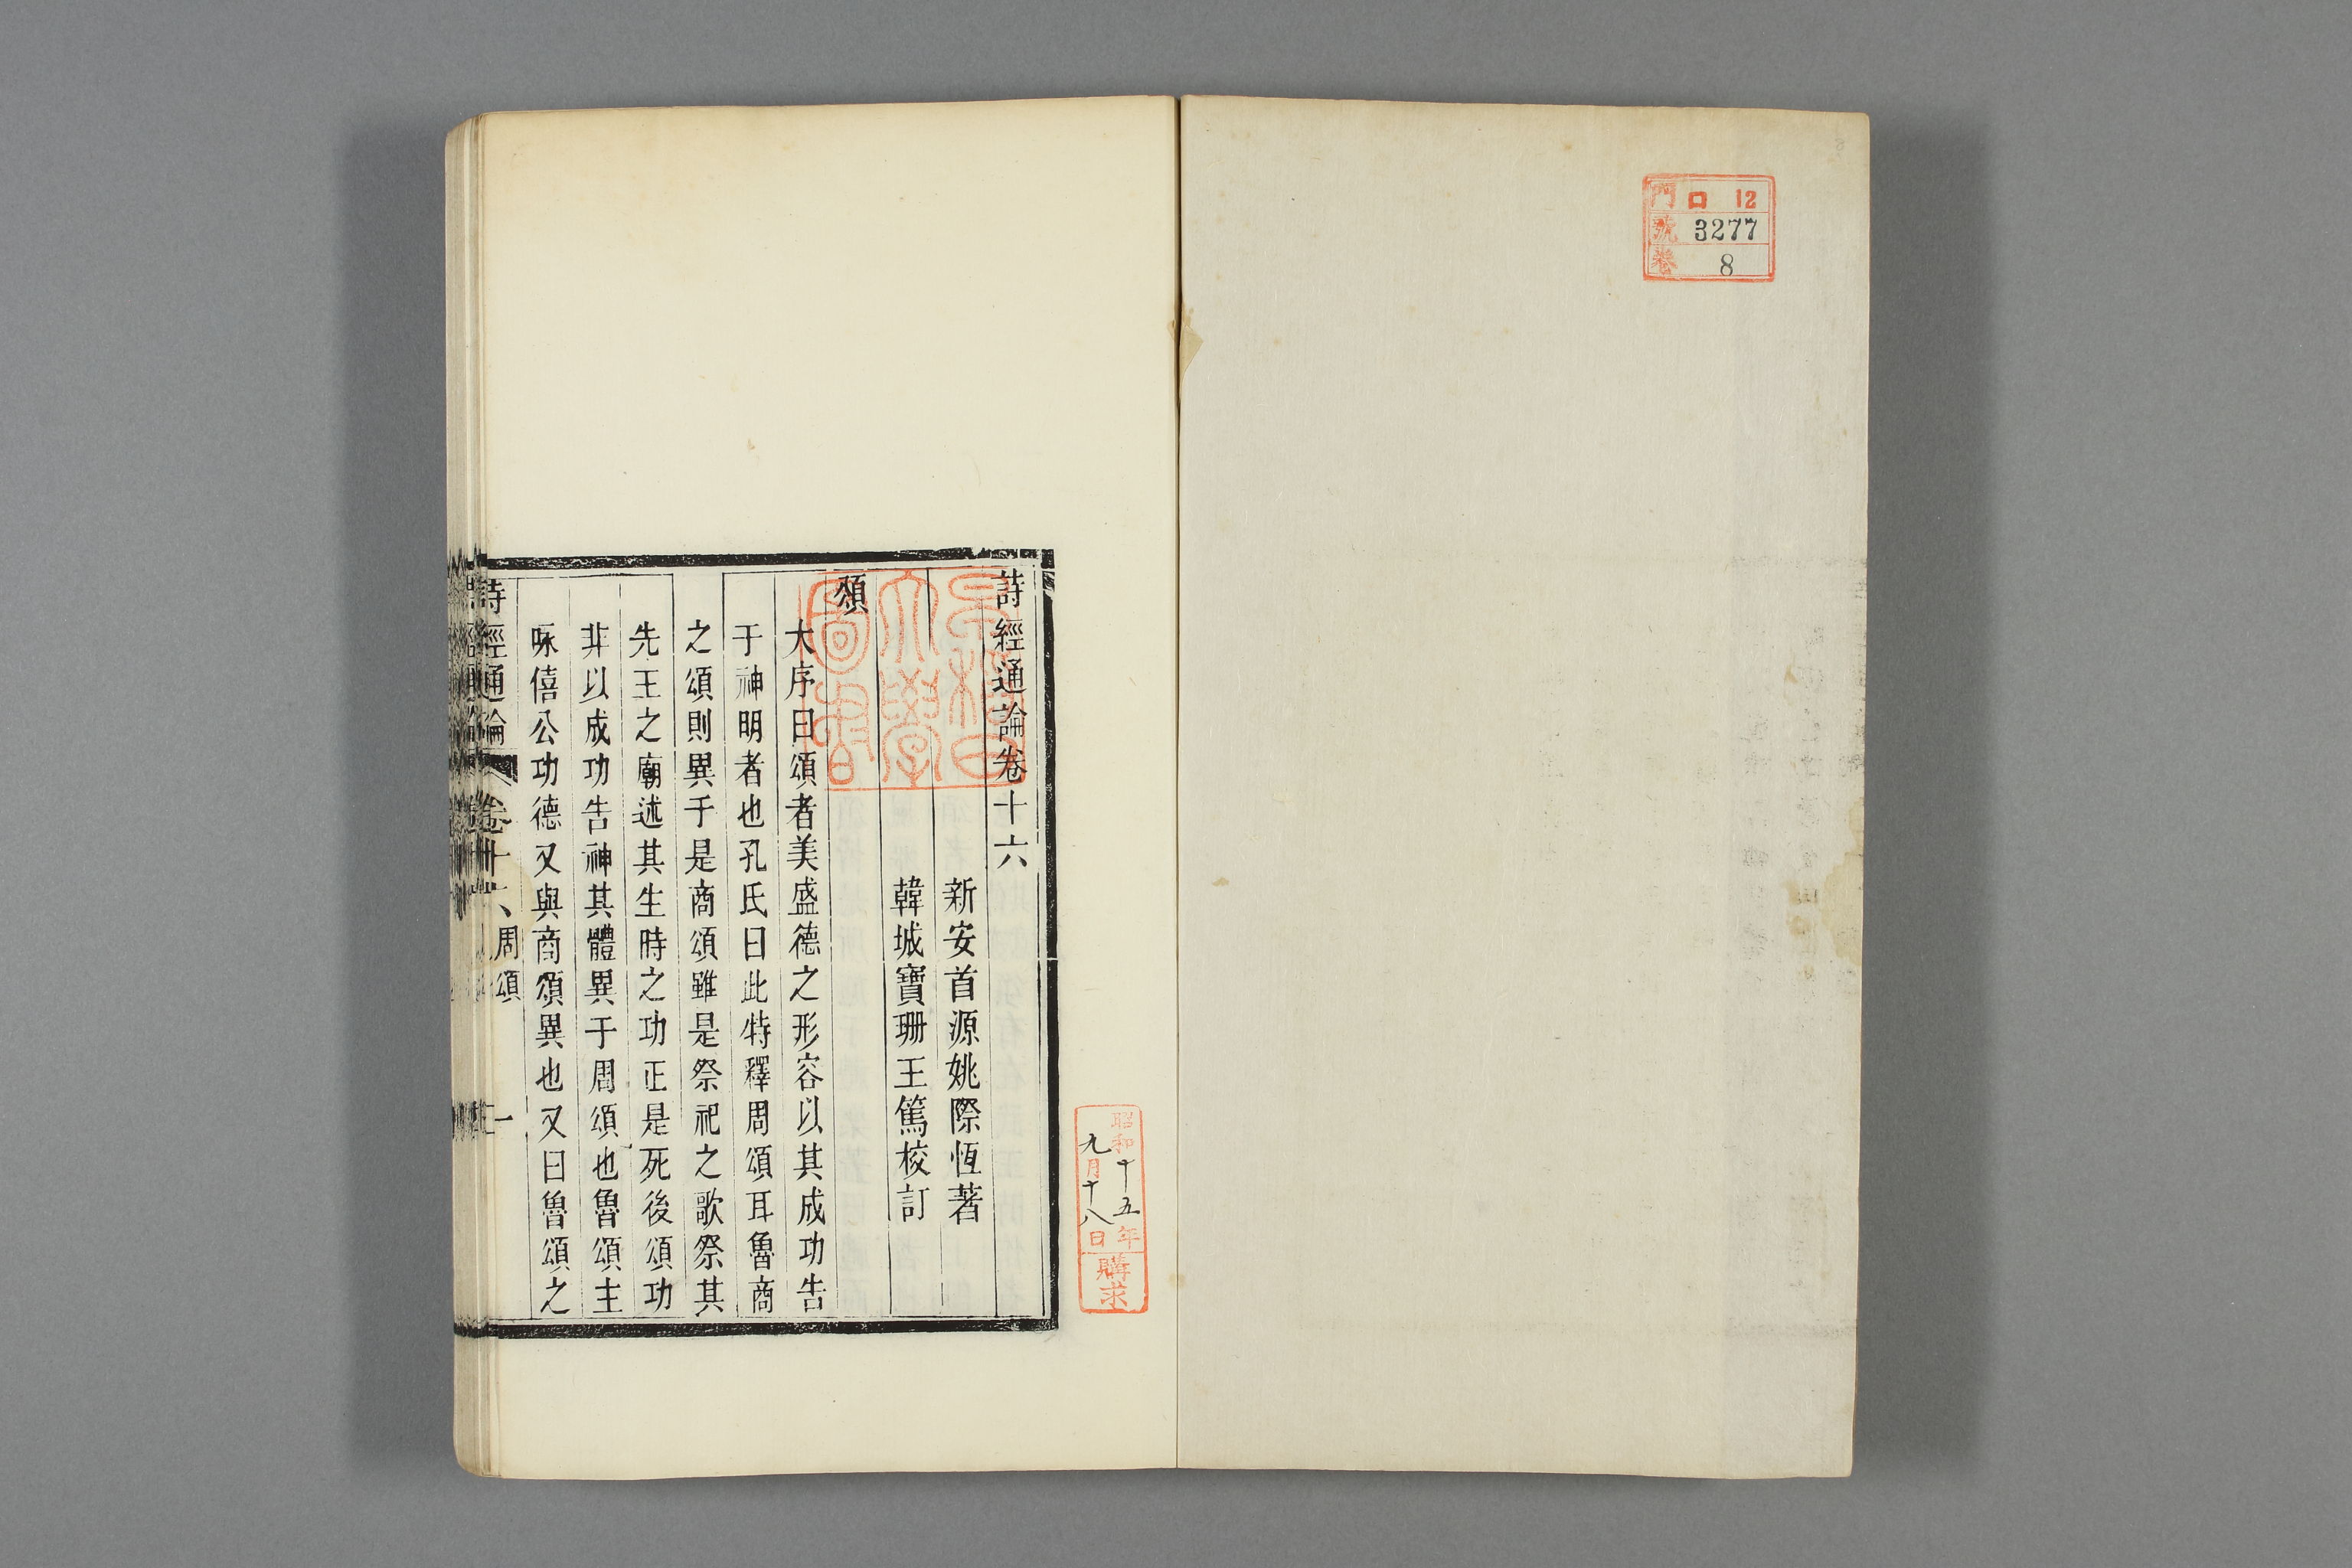 門 ロ 12
號 3277
卷 8
昭和十五年
九月十八日
購求
早稻田
大學
圖書
詩經通論卷十六
新安首源姚際恆著
韓城寶珊王篤校訂
頌
大序曰頌者美盛德之形容以其成功告
于神明者也孔氏曰此特釋周頌耳魯商
之頌則異于是商頌雖是祭祀之歌祭其
先王之廟述其生時之功正是死後頌功
非以成功告神其體異于周頌也魯頌主
咏僖公功德又與商頌異也又曰魯頌之
詩經通論 卷十六 周頌 一